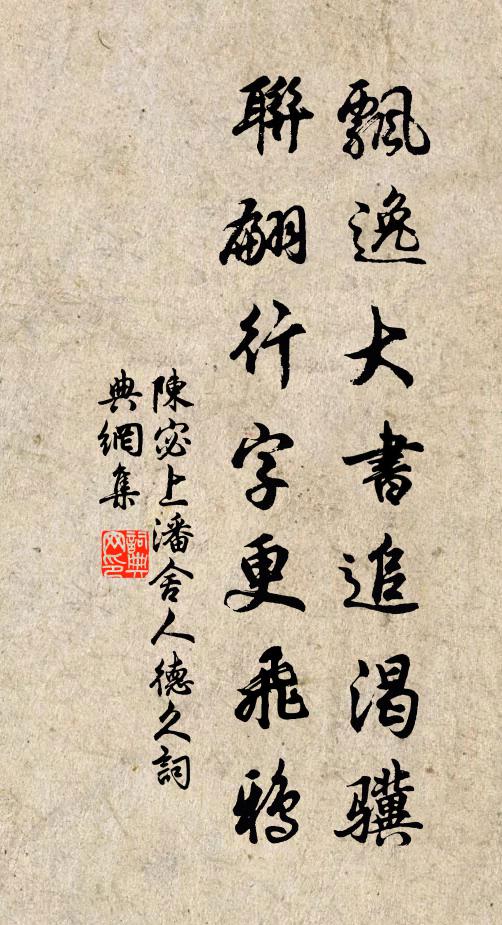 飄逸大書追渴驥
聯翩行字更飛鴉
陳宓上潘舍人德久詞
典網集
詞典
网印